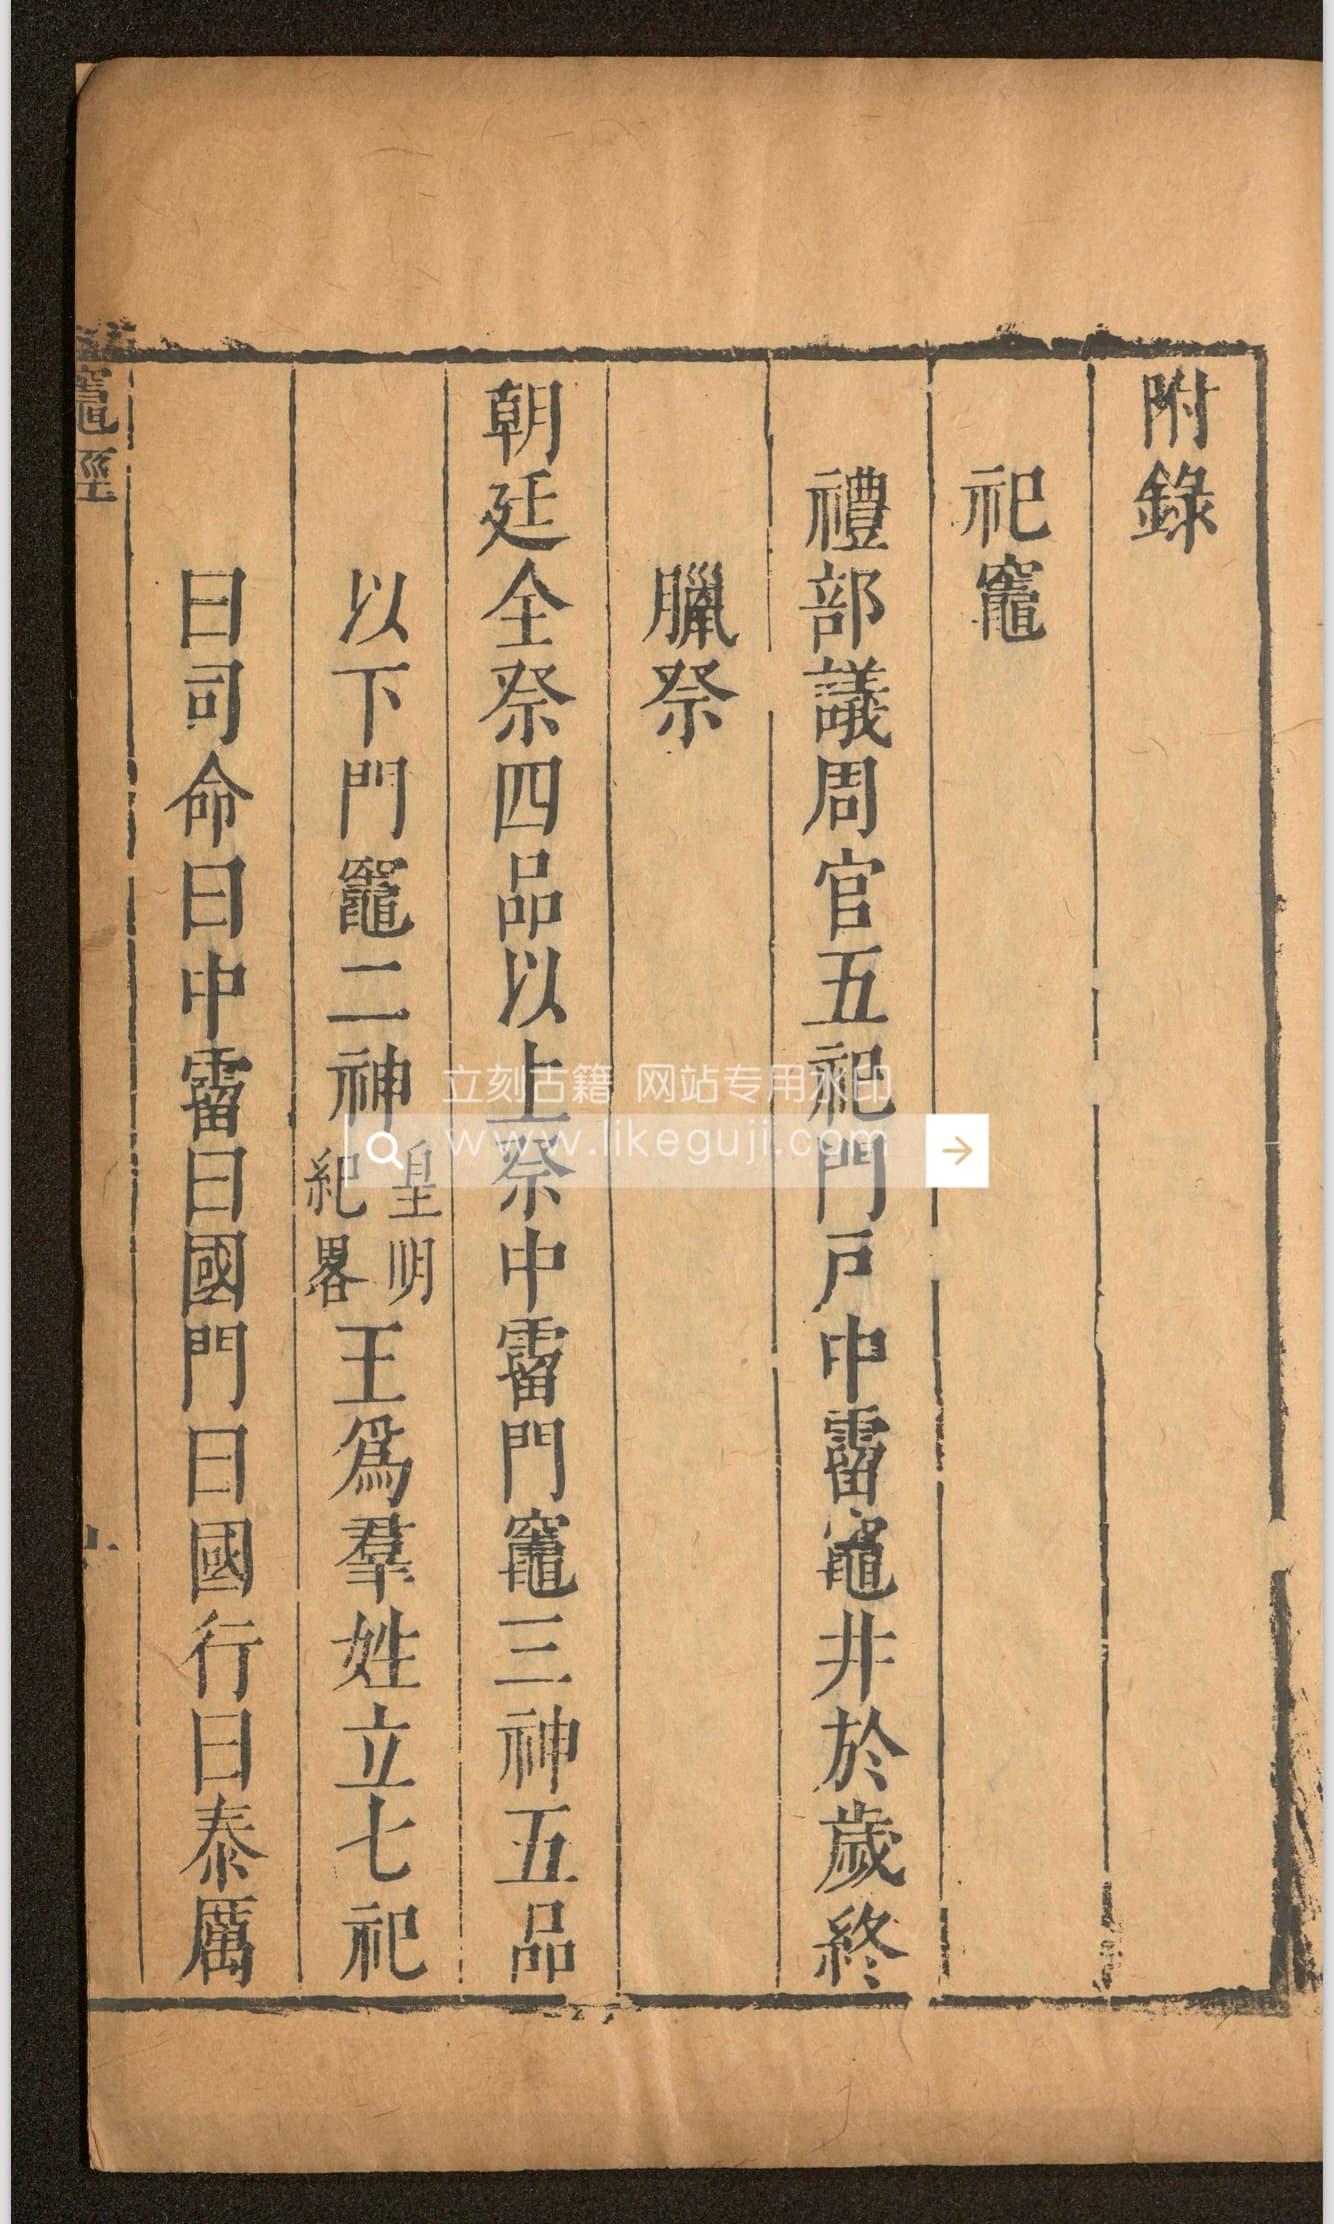 附錄
祀竈
禮部議周官五祀門戸中霤竈井於歲終
臘祭
朝廷全祭四品以上祭中霤門竈三神五品
以下門竈二神皇明紀畧王爲羣姓立七祀
曰司命曰中霤曰國門曰國行曰泰厲
竈經
立刻古籍 网站专用水印
www.likeguji.com